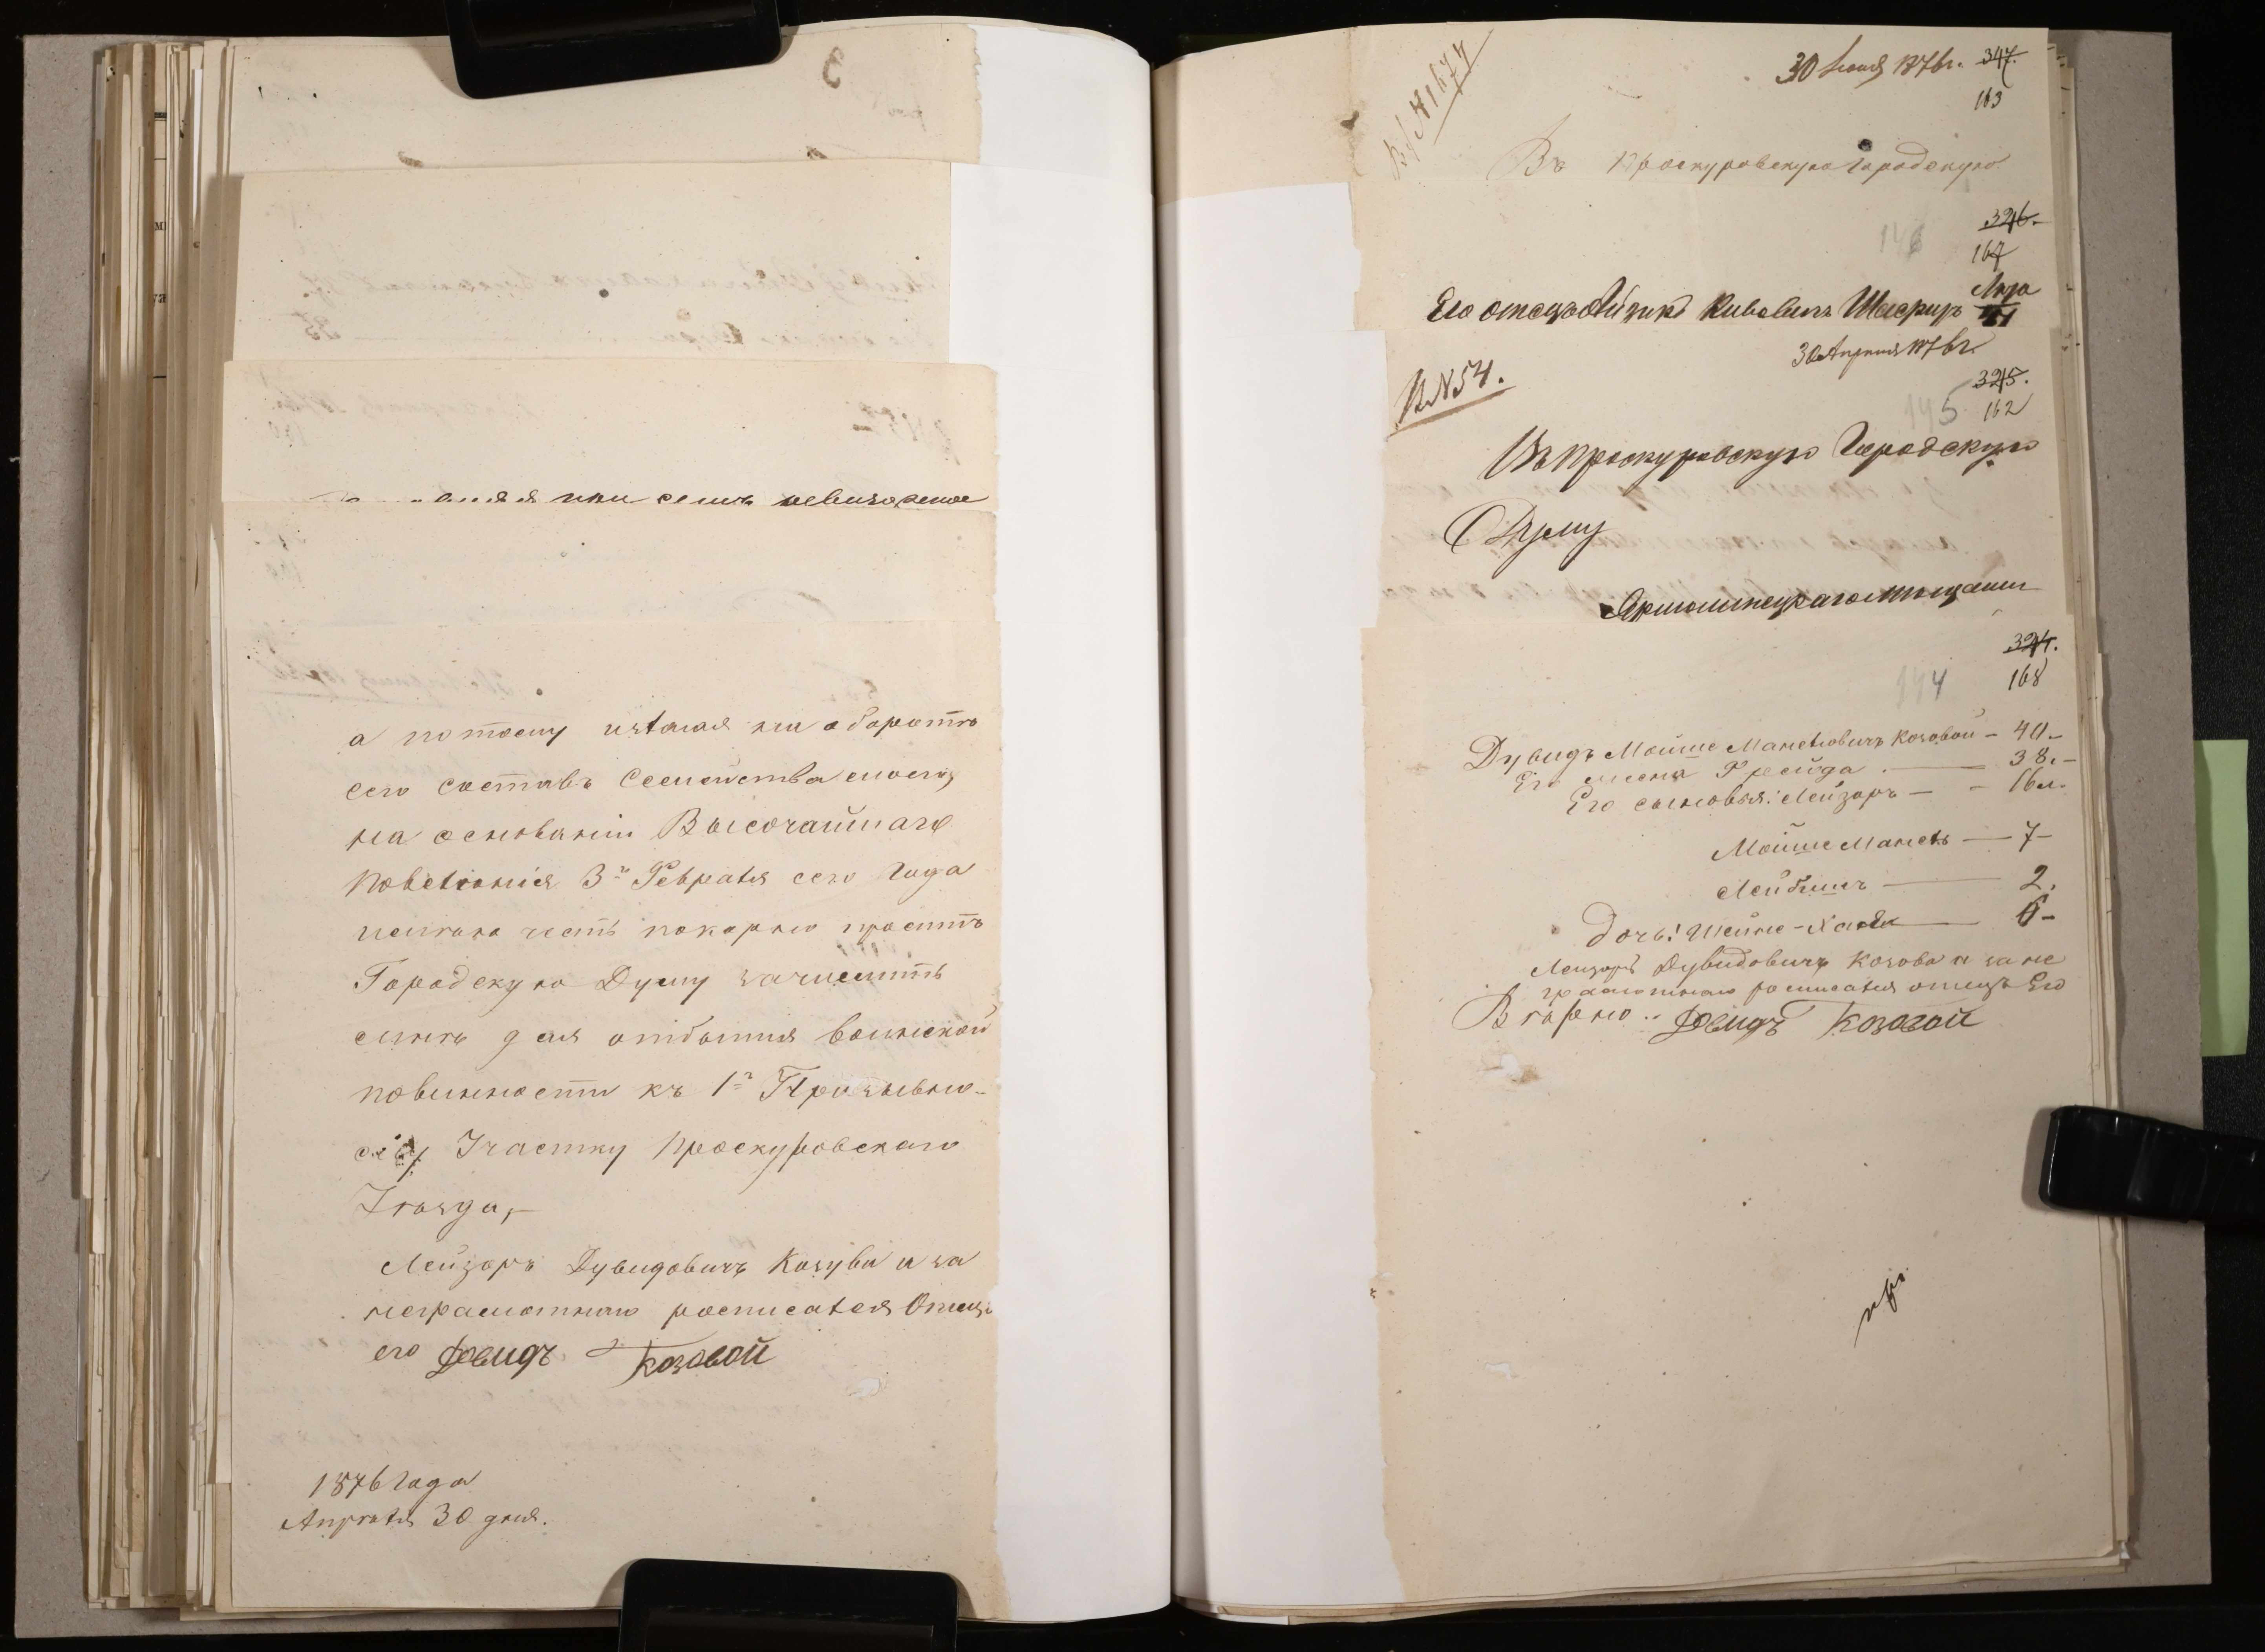 при семъ ревизское
а потому излагая на оборотѣ
сего составъ Семейства моего,
на основаніи Высочайшаго
повелѣнія 3го Февраля сего Года
имѣю честь покорно просить
Городскую Думу зачислить
сына для отбытія воинской
повинности къ 1му Призывно-
му Участку Проскуровскаго
Уѣзда,—
Лейзоръ Дувидовичъ Козувй а за
неграмотнаго росписался Отецъ
его Довидъ Козовой
1876 Года
Апрѣля 30 дня.
30 Іюня 1876 г. 347.
163
В/№ 1677
Въ Проскуровскую Городскую
346.
167
146
Его отецъ Айзикъ Кивовичъ
30 Апрѣля 1876 г.
В.№ 54.
345.
145 162
Въ Проскуровскую Городскую
Думу
Ярмолинецкаго мѣщанина
344.
144 168
Дувидъ Мойше Манелювичъ Козовой – 40.–
Его жена Фрейда — 38.–
Его сыновья: Лейзоръ — – 16 л.
Мойше Манель — 7–
Лейбишъ — 2.
Дочь: Шейне-Хая — 6–
Лейзоръ Дувидовичъ Козовой а за не
грамотнаго росписался отецъ Его
Вѣрно.. Довидъ Козовой